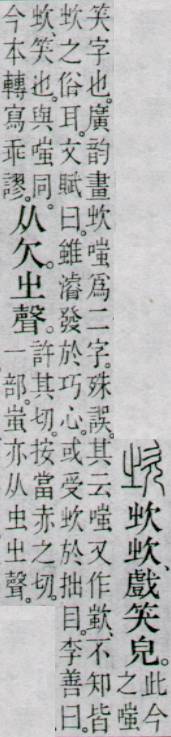 㰞㰞、戲笑皃。此今
之嗤
笑字也。廣韵畫㰞嗤爲二字。殊誤。其云嗤又作、不知皆
㰞之俗耳。文賦曰。雖濬發於巧心。或受㰞於拙目。李善曰。
㰞、笑也。與嗤同。
今本轉寫乖謬。
从欠㞢聲。
許其切。按當赤之切。
一部。蚩亦从虫㞢聲。